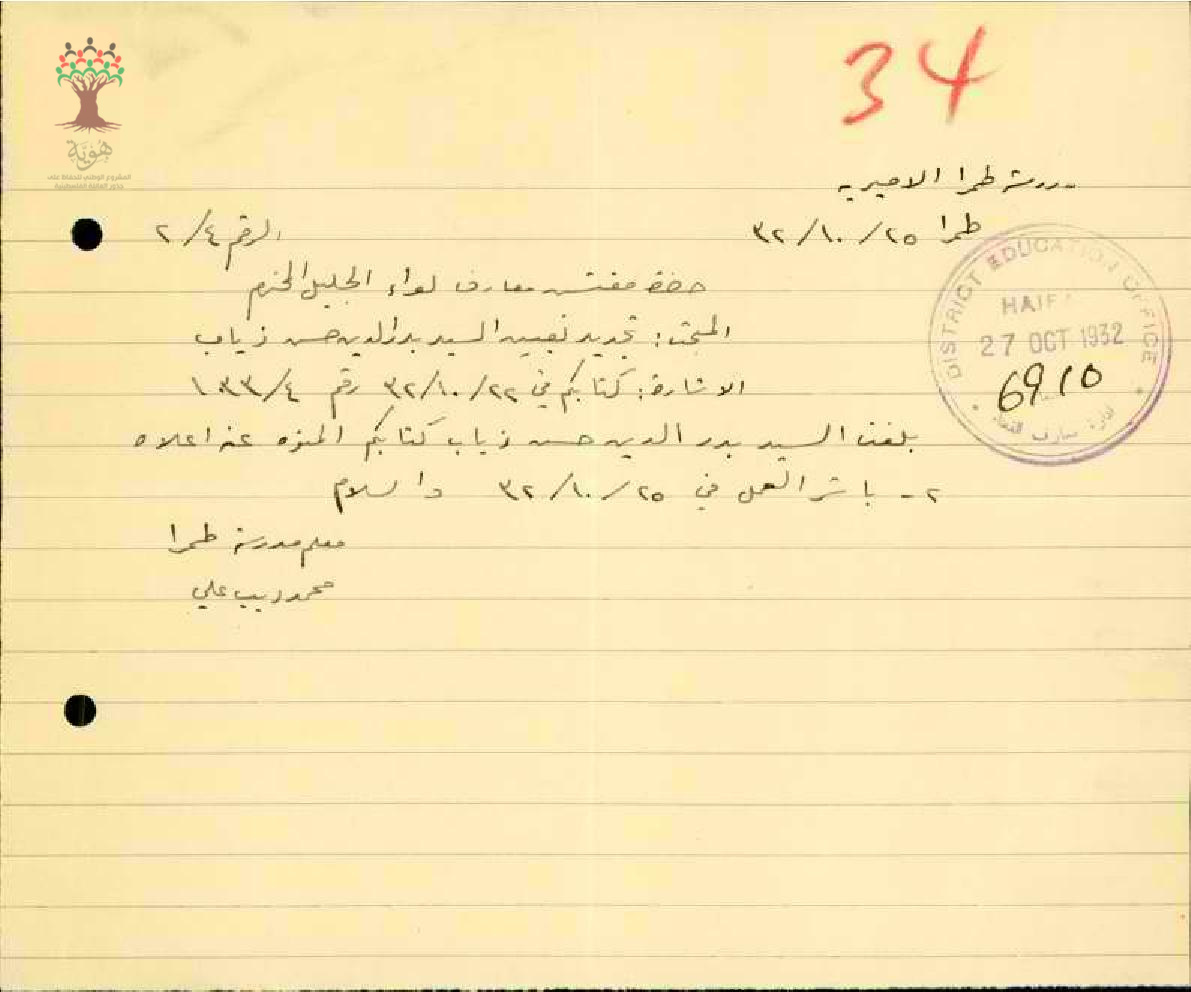 34
هوية
المشروع الوطني للحفاظ على
جذور العائلة الفلسطينية
مدرسة طمرا الاميرية
طمرا ٢٥/١٠/٣٢
الرقم ٢/٤
حضرة مفتش معارف لواء الجليل المحترم
المبحث: تجديد تعيين السيد بدرالدين حسن ذياب
الاشارة: كتابكم في ٢٢/١٠/٣٢ رقم ١٠٣٣/٤
بلغت السيد بدر الدين حسن ذياب كتابكم المنوه عنه اعلاه
٢- باشر العمل في ٢٥/١٠/٣٢ والسلام
معلم مدرسة طمرا
محمد ديب علي
DISTRICT EDUCATION OFFICE
HAIFA
27 OCT 1932
6910
ادارة معارف